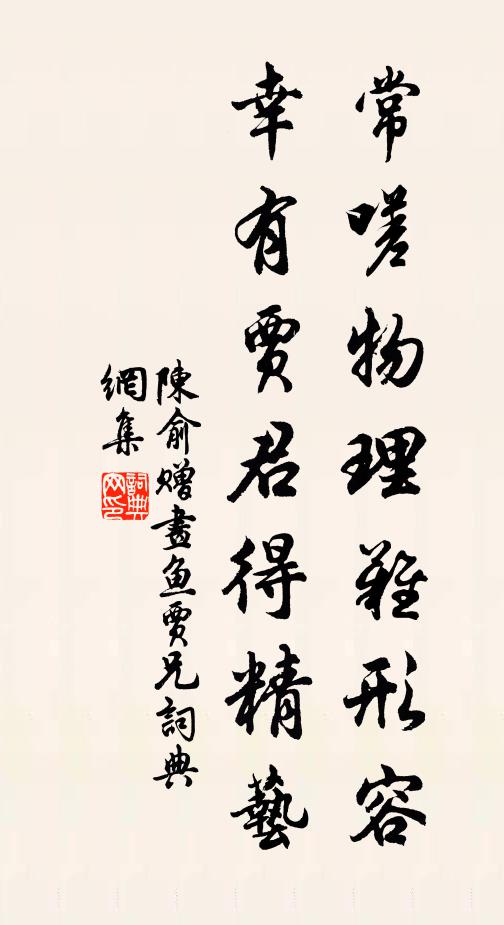 常嗟物理難形容
幸有賈君得精藝
陳俞贈畫魚賈兄詞典
網集
詞典网印